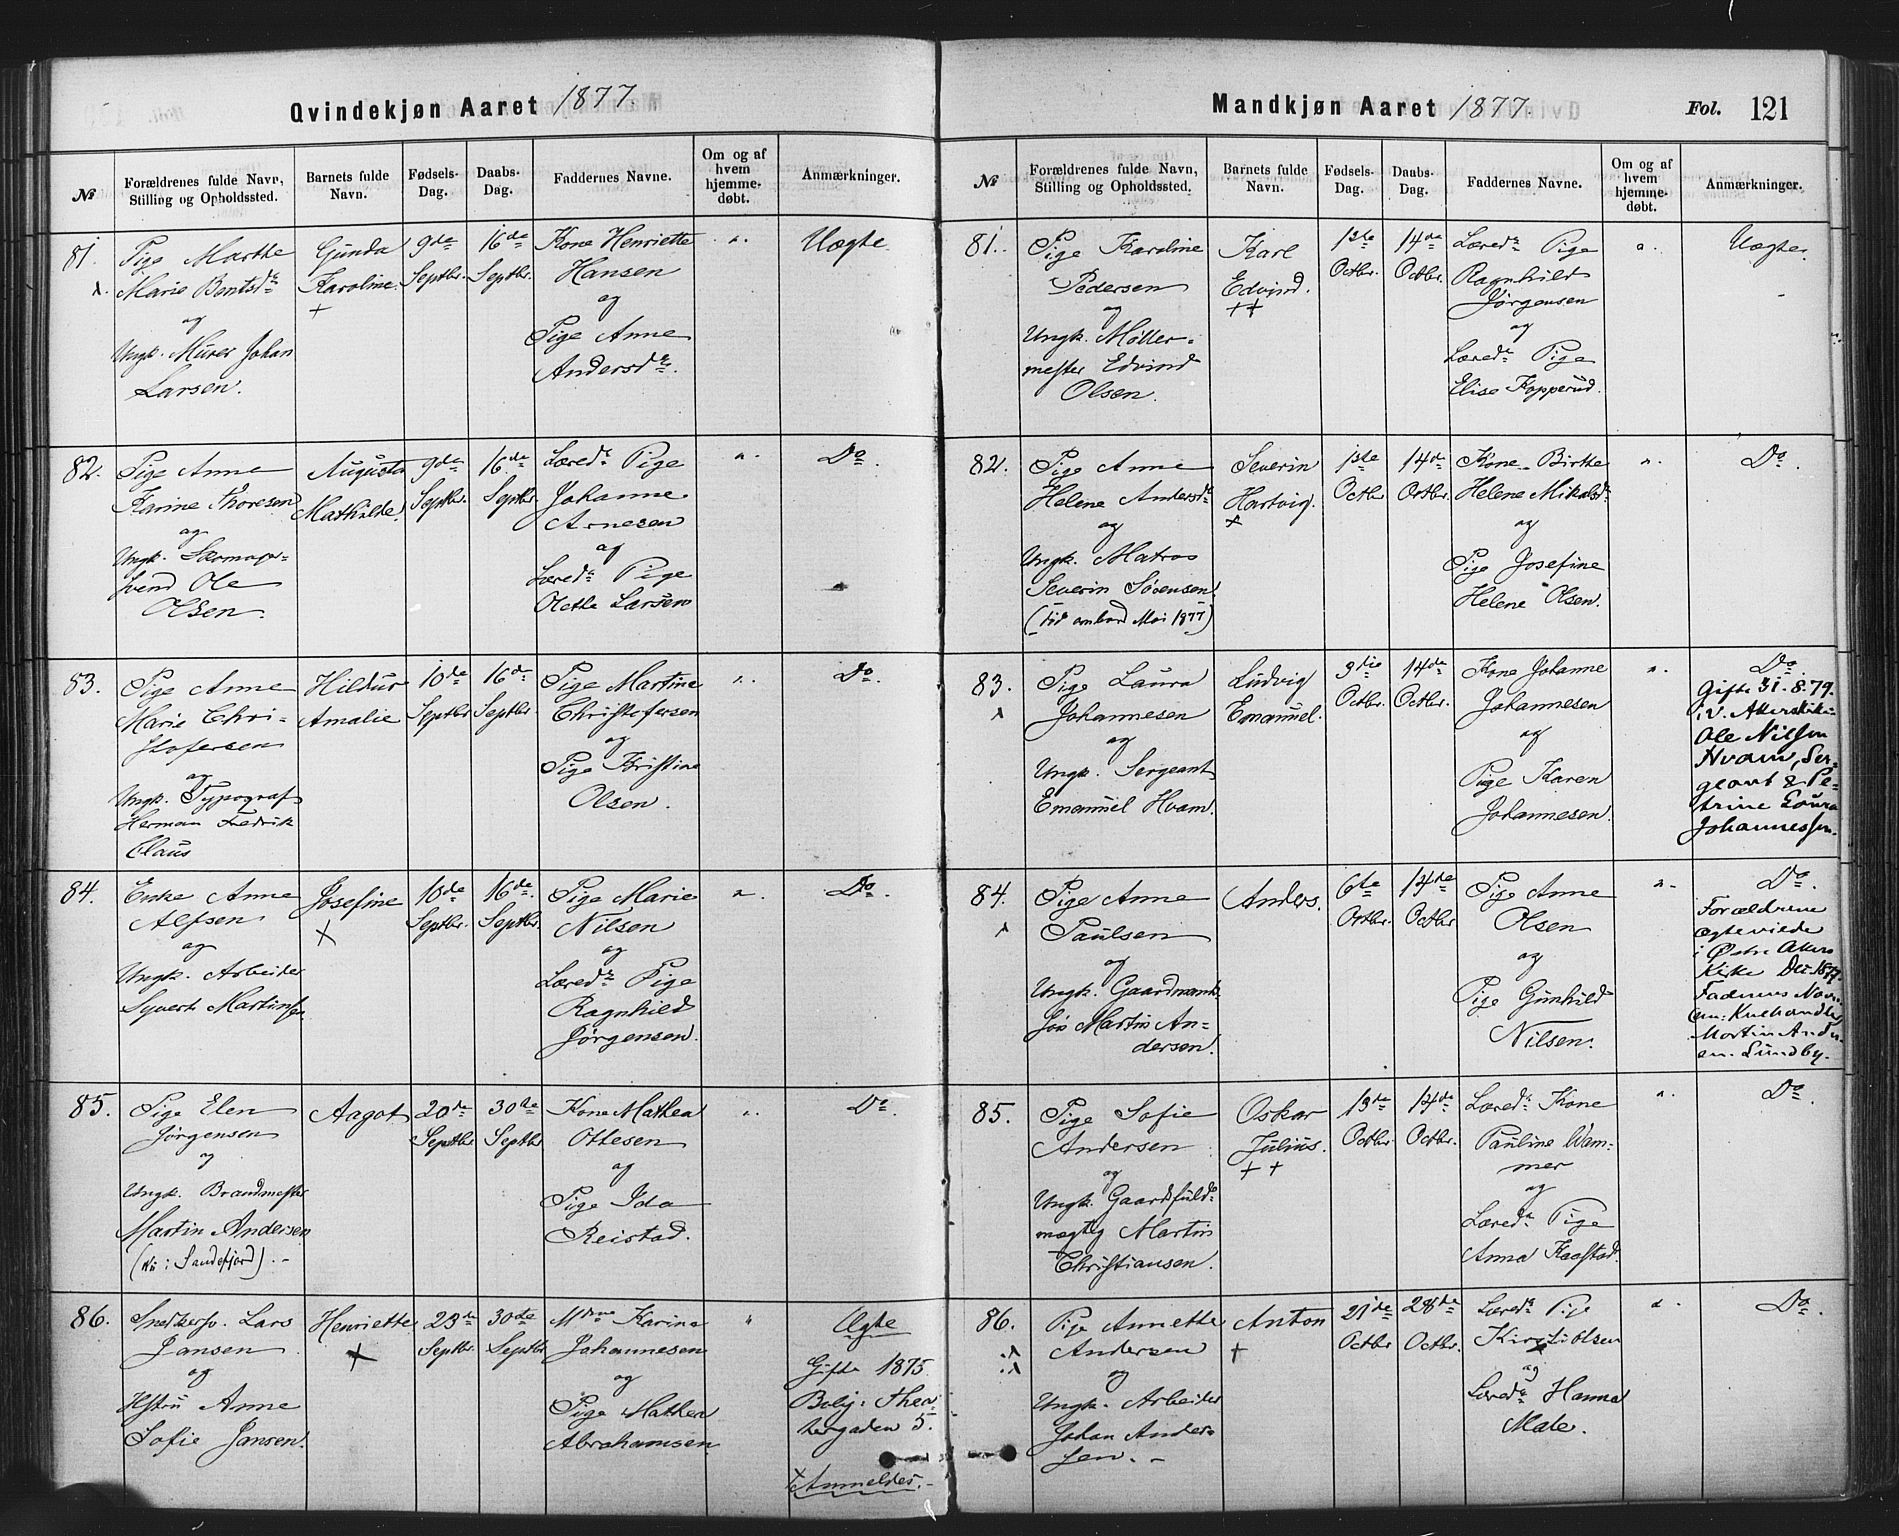 Qvindekjøn Aaret 1877.
№
Forældrenes fulde Navn, Stilling og Opholdssted.
Barnets fulde Navn.
Fødsels-Dag.
Daabs-Dag.
Faddernes Navne.
Om og af hvem hjemme-døbt.
Anmærkninger.
81.
Pige Marthe
Marie Bentsd.
og
Ungk. Murer Johan
Larsen.
Gunda
Karoline.
+
9de
Septbr.
16de
Septbr.
Kone Henriette
Hansen
og
Pige Anne
Andersd.
Uægte.
82.
Pige Anne
Karine Thoresen
og
Ungk.
svend Ole
Olsen.
Augusta
Mathilde.
9de
Septbr.
16de
Septbr.
Læred. Pige
Johanne
Arnesen
og
Læred. Pige
Olethe Larsen
Do.
83.
Pige Anne
Marie Chri-
stofersen
og
Ungk. Typograf
Herman Fredrik
Claus
Hildur
Amalie
10de
Septbr.
16de
Septbr.
Pige Martine
Christofersen
og
Pige Kristine
Olsen.
Do.
84.
Enke Anne
Alfsen
og
Ungk. Arbeider
Syvert Martinsen
Josefine
+
10de
Septbr.
16de
Septbr.
Pige Marie
Nilsen
og
Læred. Pige
Ragnhild
Jørgensen.
Do.
85.
Pige Elen
Jørgensen
og
Ungk. Brandmester
Martin Andersen
(nu: Sandefjord).
Aagot
20de
Septbr
30te
Septbr
Kone Mathea
Ottesen
og
Pige Ida
Reistad.
Do.
86.
Snedkersv. Lars
Jansen
og
Hstru Anne
Sofie Jansen.
Henriette
+
23de
Septbr.
30te
Septbr
Mdme Karine
Johannesen
og
Pige Mathea
Abrahamsen
Ægte
Gifte 1875.
Bolig: Thea-
tergaden 5.
Anmeldes.
Mandkjøn Aaret 1877.
Fol. 121
№
Forældrenes fulde Navn, Stilling og Opholdssted.
Barnets fulde Navn.
Fødsels-Dag.
Daabs-Dag.
Faddernes Navne.
Om og af hvem hjemme-døbt.
Anmærkninger.
81.
Pige Karoline
Pedersen
og
Ungk. Møller-
mester Edvind
Olsen.
Karl
Edvind.
++
1ste
Octbr.
14de
Octbr.
Læred. Pige
Ragnhild
Jørgensen
og
Læred. Pige
Elise Kopperud.
Uægte.
82.
Pige Anne
Helene Andersd.
og
Ungk. Matros
Severin Sørensen.
(tid ombord Mai 1877)
Severin
Hartvig.
+
1ste
Octbr
14de
Octbr.
Kone Birthe
Helene Mikalsd.
og
Pige Josefine
Helene Olsen.
Do.
83.
Pige Laura
Johannesen
og
Ungk. Sergeant
Emanuel Hvam.
Ludvig
Emanuel.
3die
Octbr.
14de
Octbr.
Kone Johanne
Johannesen
og
Pige Karen
Johannesen.
Do.
Gifte 31.8.79.
i V. Akerskirke
Ole Nilsen
Hvam, Ser-
geant & Pe-
trine Laura
Johannessen.
84.
Pige Anne
Paulsen
og
Ungk. Gaardmand
Jon Martin An-
dersen.
Anders.
6te
Octbr.
14de
Octbr.
Pige Anne
Olsen
og
Pige Gunhild
Nilsen.
Do.
Forældrene
ægteviede
i Østre Akers
Kirke Dec. 1877.
Faderens Navn
er: Kvæghandler
Martin Anders-
en Lundby.
85.
Pige Sofie
Andersen
og
Ungk. Gaardsfuld-
mægtig Martin
Christiansen.
Oskar
Julius.
++
13de
Octbr.
14de
Octbr.
Læred. Kone
Pauline Wam-
mer
og
Læred. Pige
Anna Kaafstad.
Do.
86.
Pige Annette
Andersen
og
Ungk. Arbeider
Johan Ander-
sen.
Anton
+
21de
Octbr
28de
Octbr.
Læred. Pige
og
Læred. Hanna
Male.
Do.